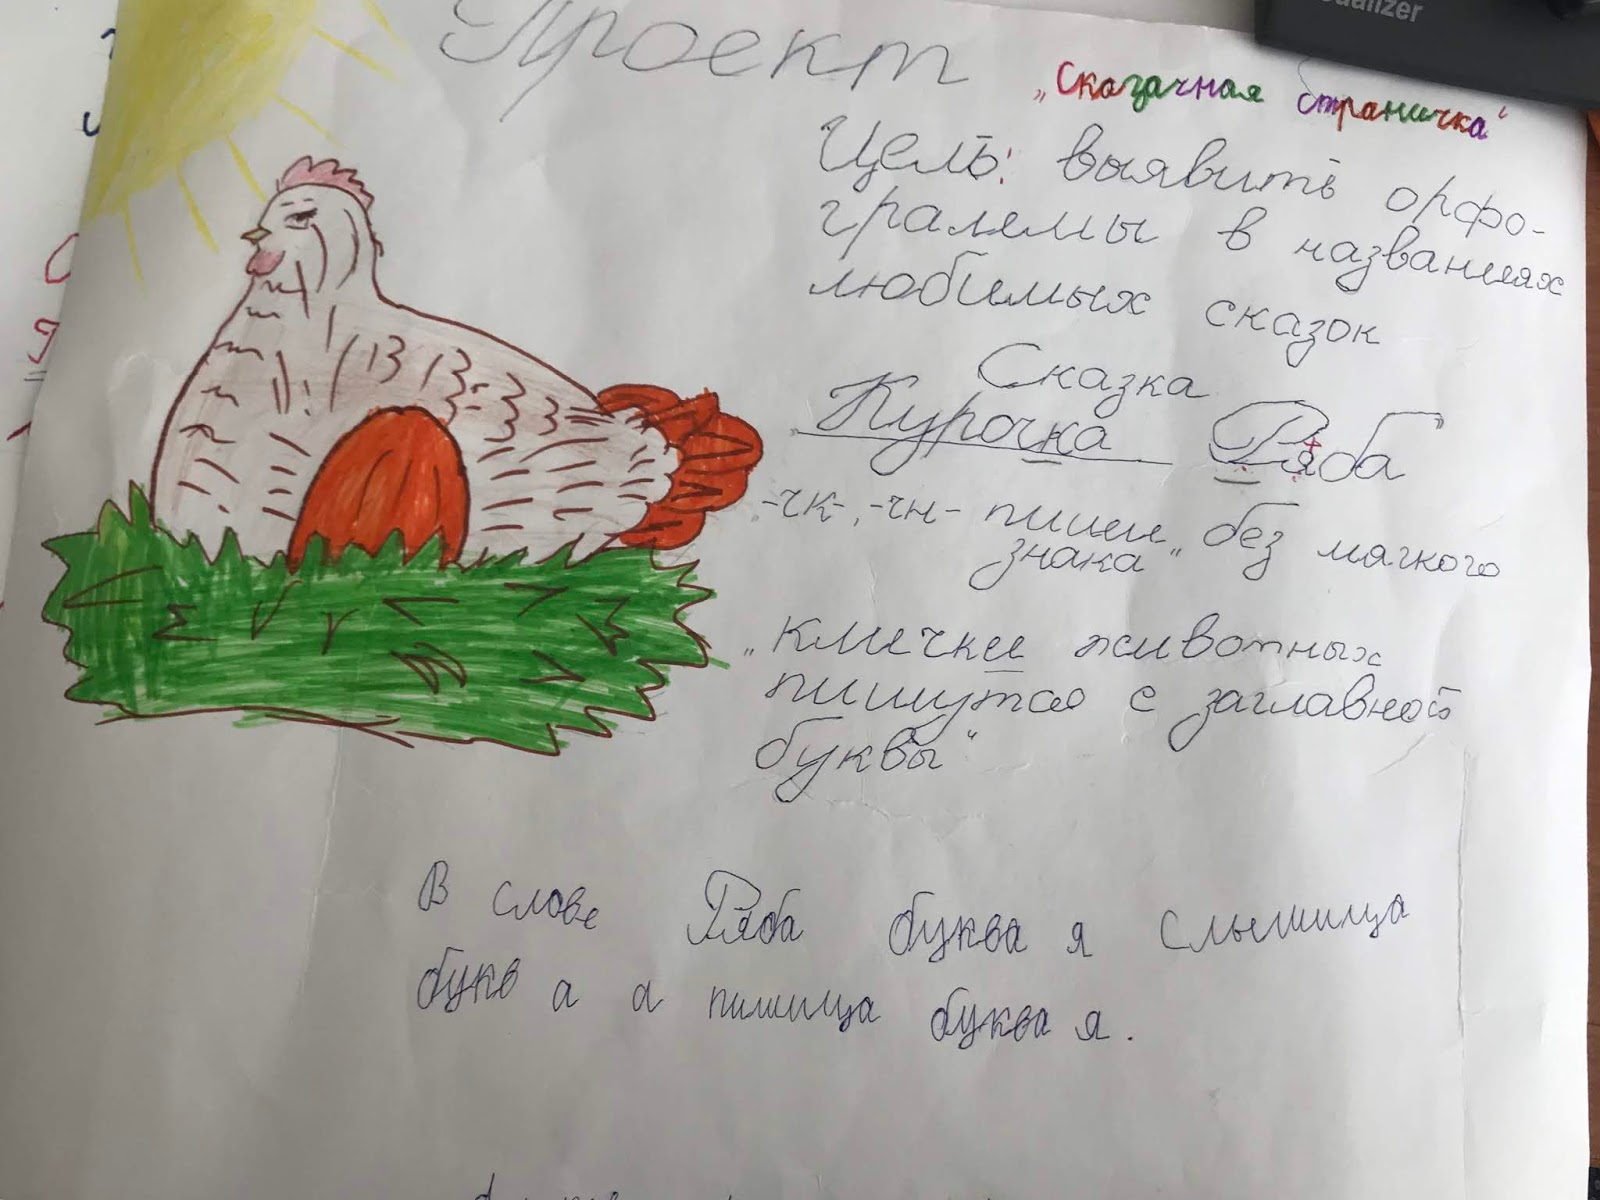 Проект
„Сказачная страничка“
Цель: выявить орфо-
граммы в названиях
любимых сказок
Сказка
„Курочка Ряба”
-чк-, -чн- пишем „без мягкого
знака“
„клички животных
пишутся с заглавной
буквы“
В слове Ряба буква я слышица
букв а а пишица буква я.